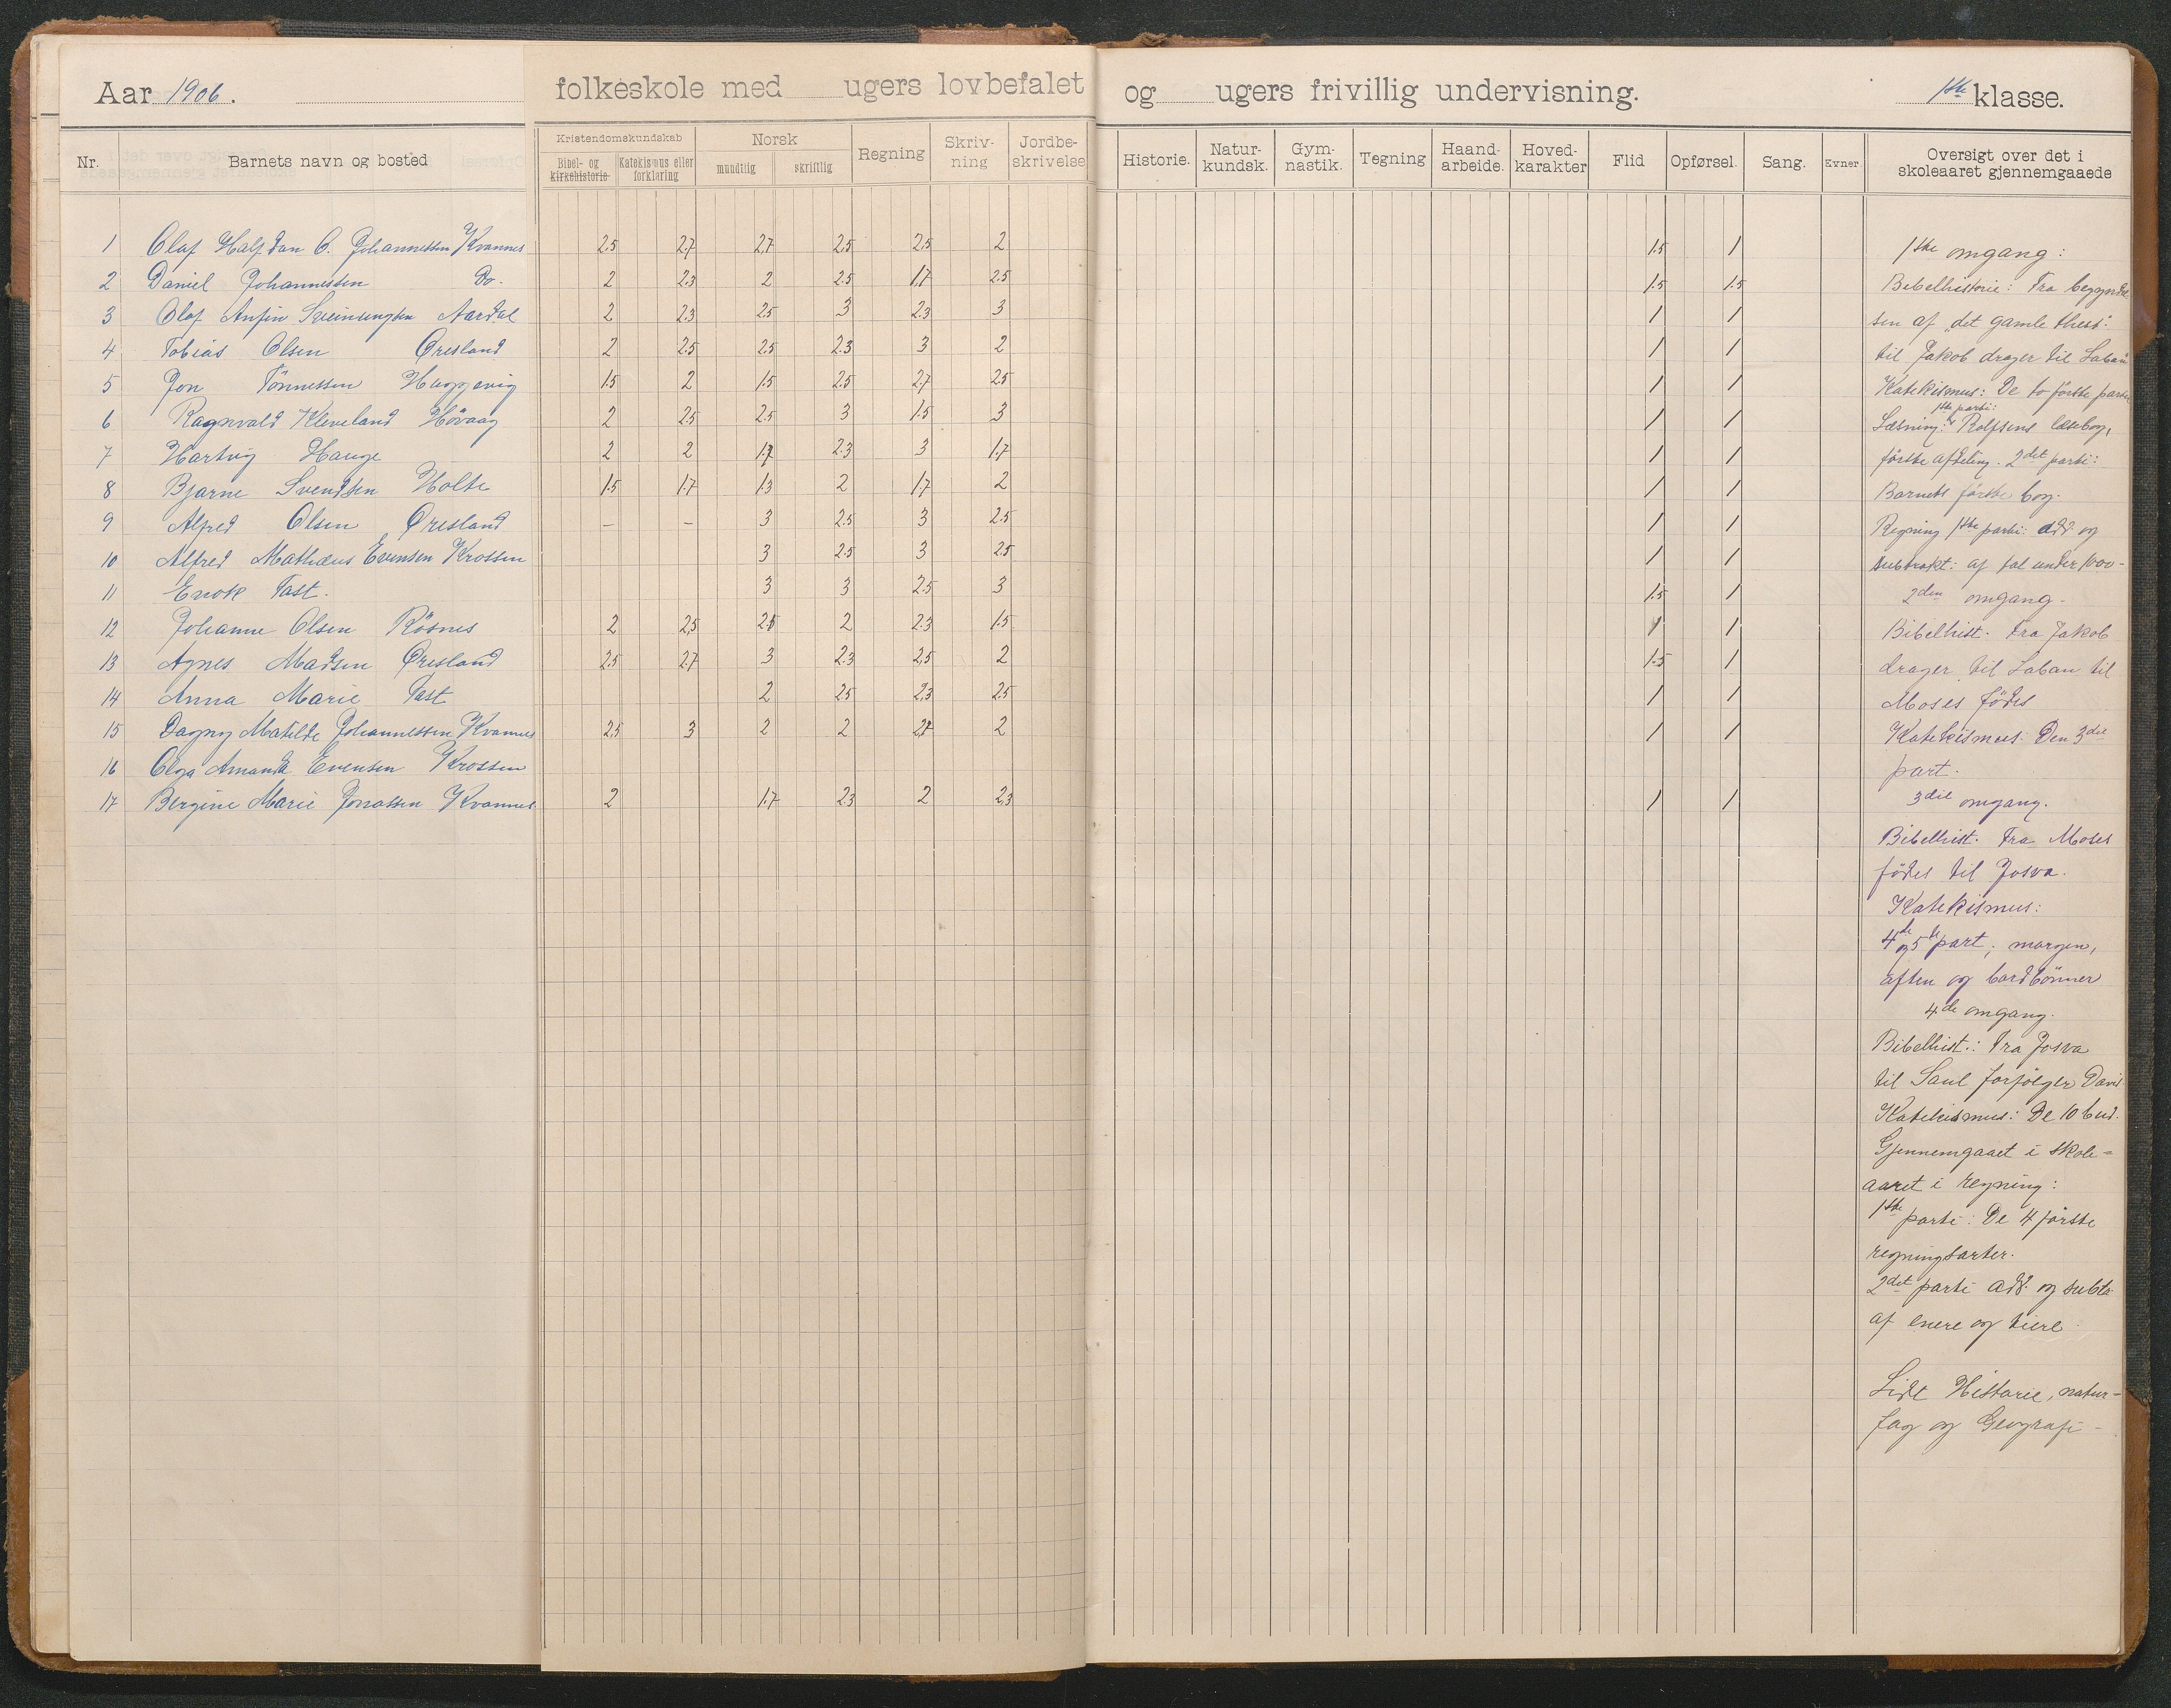 Aar 1906. folkeskole med ugers lovbefalet og ugers frivillig undervisning. 1ste klasse.
Nr. Barnets navn og bosted Kristendomskundskab Bibel- og kirkehistorie Katekismus eller forklaring Norsk mundtlig skriftlig Regning Skriv-ning Jordbe-skrivelse Historie. Natur-kundsk. Gym-nastik. Tegning Haand-arbeide. Hoved-karakter Flid Opførsel. Sang. Evner Oversigt over det i skoleaaret gjennemgaaede
1 Olaf Halfdan O. Johannessen Kvannes 2.5 2.7 2.7 2.5 2.5 2 1.5 1
2 Daniel Johannessen Do. 2 2.3 2 2.5 1.7 2.5 1.5 1.5
3 Olaf Anfin Aardal 2 2.3 2.5 3 2.3 3 1 1
4 Tobias Olsen Øresland 2 2.5 2.5 2.3 3 2 1 1
5 Jon Tönnessen 1.5 2 1.5 2.5 2.7 2.5 1 1
6 Ragnvald Kleveland Hövaag 2 2.5 2.5 3 1.5 3 1 1
7 Hartvig Hauge 2 2 1.7 2.3 3 1.7 1 1
8 Bjarne Svendsen Holte 1.5 1.7 1.3 2 1.7 2 1 1
9 Alfred Olsen Øresland – – 3 2.5 3 2.5 1 1
10 Alfred Mathæus Evensen Krossen 3 2.5 3 2.5 1 1
11 Enok Tast. 3 3 2.5 3 1.5 1
12 Johanne Olsen Rösnes 2 2,5 2 2.3 1.5 1 1
13 Agnes Madsen Øresland 2.5 2.7 3 2.3 2.5 2 1.5 1
14 Anna Marie Tast 2 2.5 2.3 2.5 1 1
15 Dagny Matilde Johannessen Kvannes 2.5 3 2 2 2.7 2 1 1
16 Olga Amanda Evensen Krossen
17 Bergine Marie Jonassen Kvannes 2 1.7 2.3 2 2.3 1 1
1ste omgang:
Bibelhistorie: Fra begyndel
sen af "det gamle thest."
til Jakob drager til Laban
Katekismus: De to förste parter
1ste parti:
Læsning: Rolfsens læsebog,
förste afdeling. 2det parti:
Barnets förste bog.
Regning 1ste parti: add. og
subtrakt: af tal under 1000-
2den omgang.
Bibelhist. Fra Jakob
drager til Laban til
Moses födes
Katekismus: Den 3die
part.
3die omgang.
Bibelhist. Fra Moses
födes til Josva.
Katekismus:
4de og 5te part, morgen,
aften og bordbönner
4de omgang.
Bibelhist.: Fra Josva
til Saul forfölger David
Katekismus: De 10 bud.
Gjennemgaaet i skole-
aaret i regning:
1ste parti: De 4 förste
regningsarter.
2det parti add. og subtr.
af enere og tiere
Lidt Historie, natur-
fag og Geografi –